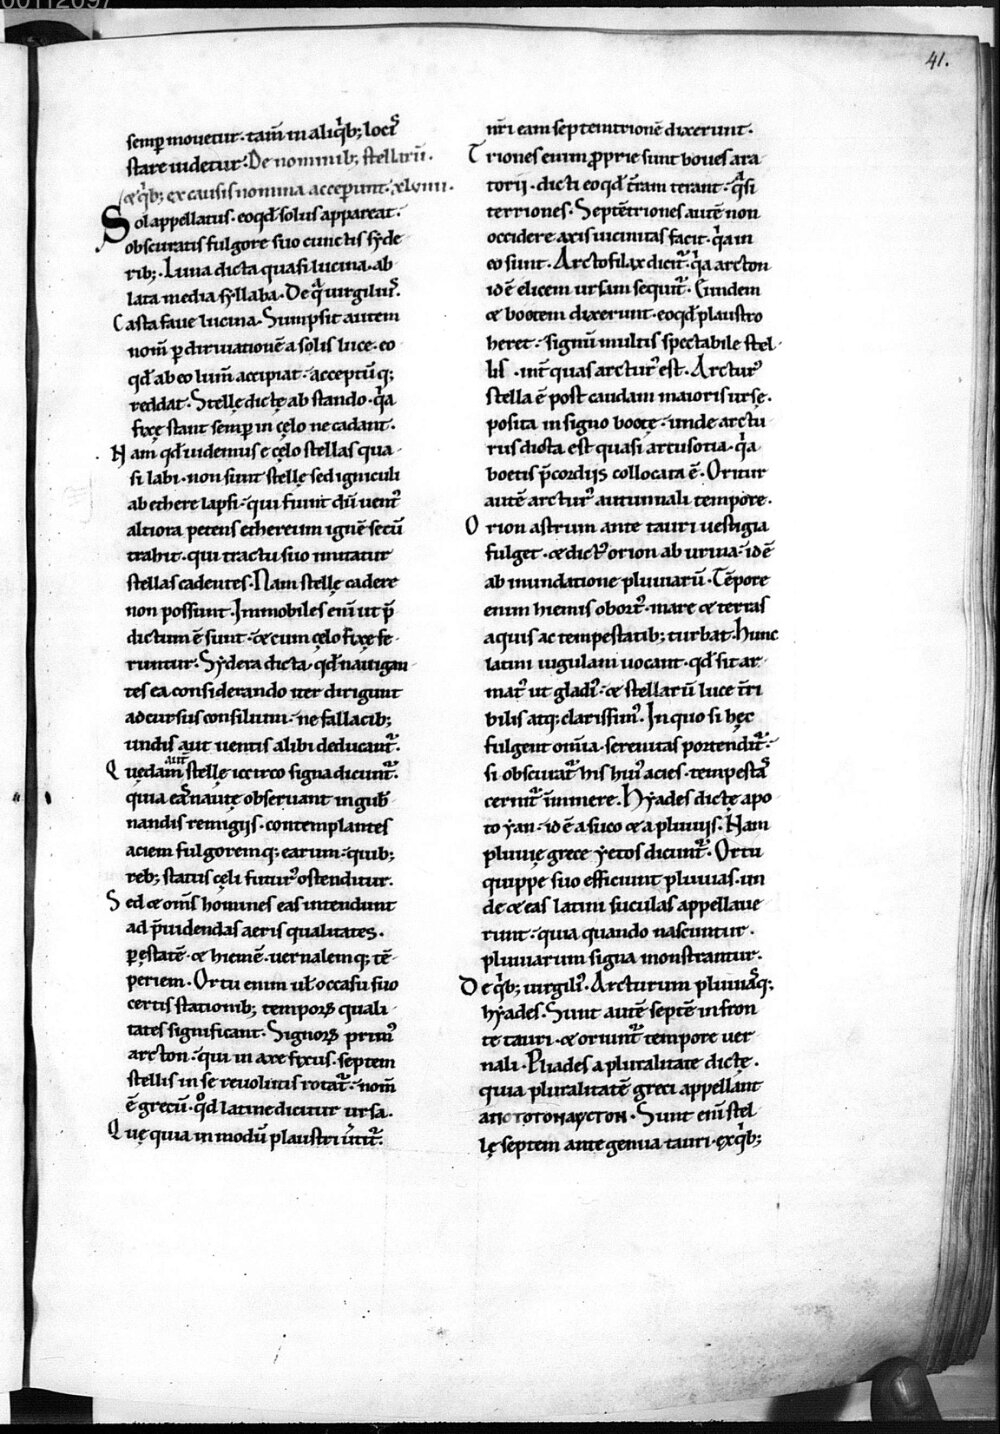 41.
semꝑ mouetur· tam̄ in aliq̄b; locꝭ
stare uidetur· De nominib; stellarū·
& q̄b; ex causis nomina acceperunt· xlviiii·
Sol appellatus· eoqđ solus appareat·
obscuratis fulgore suo cunctis syde
rib;· Luna dicta quasi lucina· ab
lata media syllaba· De q̄ uirgiliuꝰ·
Casta faue lucina· Sumpsit autem
nom̄ ꝑ diriuationē a solis luce· eo
qđ ab eo lum̄ accipiat· acceptūq;
reddat· Stellę dictę ab stando· q̄a
fixę stant semꝑ in cęlo ne cadant·
Nam qđ uidemus e cęlo stellas qua
si labi· non sunt stellę sed igniculi
ab ethere lapsi· qui fiunt dū uentꝰ
altiora petens ethereum ignē secū
trahit· qui tractu suo imitatur
stellas cadentes· Nam stellę cadere
non possunt· Immobiles eni͂ ut p̄
dictum ē sunt· & cum cęlo fixę fe
runtur· Sydera dicta· qđ nauigan
tes ea considerando iter dirigunt
ad cursus consilium· ne fallacib;
undis aut uentis alibi deducant᷑·
Quędam aut̄ stellę iccirco signa dicunt᷑·
quia ea nautę obseruant in gub̄
nandis remigijs· contemplantes
aciem fulgoremq; earum· quib;
reb; status cęli futurꝰ ostenditur·
Sed & om̄s homines eas intendunt
ad p̄uidendas aeris qualitates·
ꝑ ęstatē· & hiemē· uernalemq; tē
periem· Ortu enim ul̓ occasu suo
certis stationib; temporꝝ quali
tates significant· Signorꝝ primꝰ
arcton· qui in axe fixus· septem
stellis in se reuolutis rotat᷑· nom̄
ē grecū· qđ latine dicitur ursa·
Quę quia in modū plaustri uertit᷑·
nr̄i eam septemtrionē dixerunt·
Triones enim ꝓprie sunt boues ara
torij· dicti eoqđ t̄ram terant· q̄si
terriones· Septētriones autē non
occidere axis uicinitas facit· q̄a in
eo sunt· Arctofilax dicit᷑· q̄a arcton
id ē elicem ursam sequit᷑· Eundem
& bootem dixerunt· eoqđ plaustro
heret· signū multis spectabile stel
lis· int̄ quas arcturꝰ est· Arcturꝰ
stella ē post caudam maioris ursę·
posita in signo bootę· unde arctu
rus dicta est quasi artusotia· q̄a
boetis p̄cordijs collocata ē· Oritur
autē arcturꝰ autumnali tempore·
Orion astrum ante tauri uestigia
fulget· & dictꝰ orion ab urina· id ē
ab inundatione pluuiarū· Tēpore
enim hiemis obortꝰ· mare & terras
aquis ac tempestatib; turbat· Hunc
latini iugulam uocant· qđ sit ar
matꝰ ut gladiꝰ· & stellarū luce t̄ri
bilis atq; clarissimꝰ· In quo si hęc
fulgent om̄ia· serenitas portendit᷑·
si obscurat᷑ his huiꝰ acies· tempestas
cernit᷑ īminere· Hyades dictę apo
to yan· id ē a suco & a pluuijs· Nam
pluuię grece yetos dicunt᷑· Ortu
quippe suo efficiunt pluuias· un
de & eas latini suculas appellaue
runt· quia quando nascuntur·
pluuiarum signa monstrantur·
De q̄b; uirgiliꝰ· Arcturum pluuiasq;
hyades· Sunt autē septē in fron
te tauri· & oriunt᷑ tempore uer
nali· Pliades a pluralitate dictę·
quia pluralitatē greci appellant
Sunt eni͂ stel
lę septem ante genua tauri· ex q̄b;